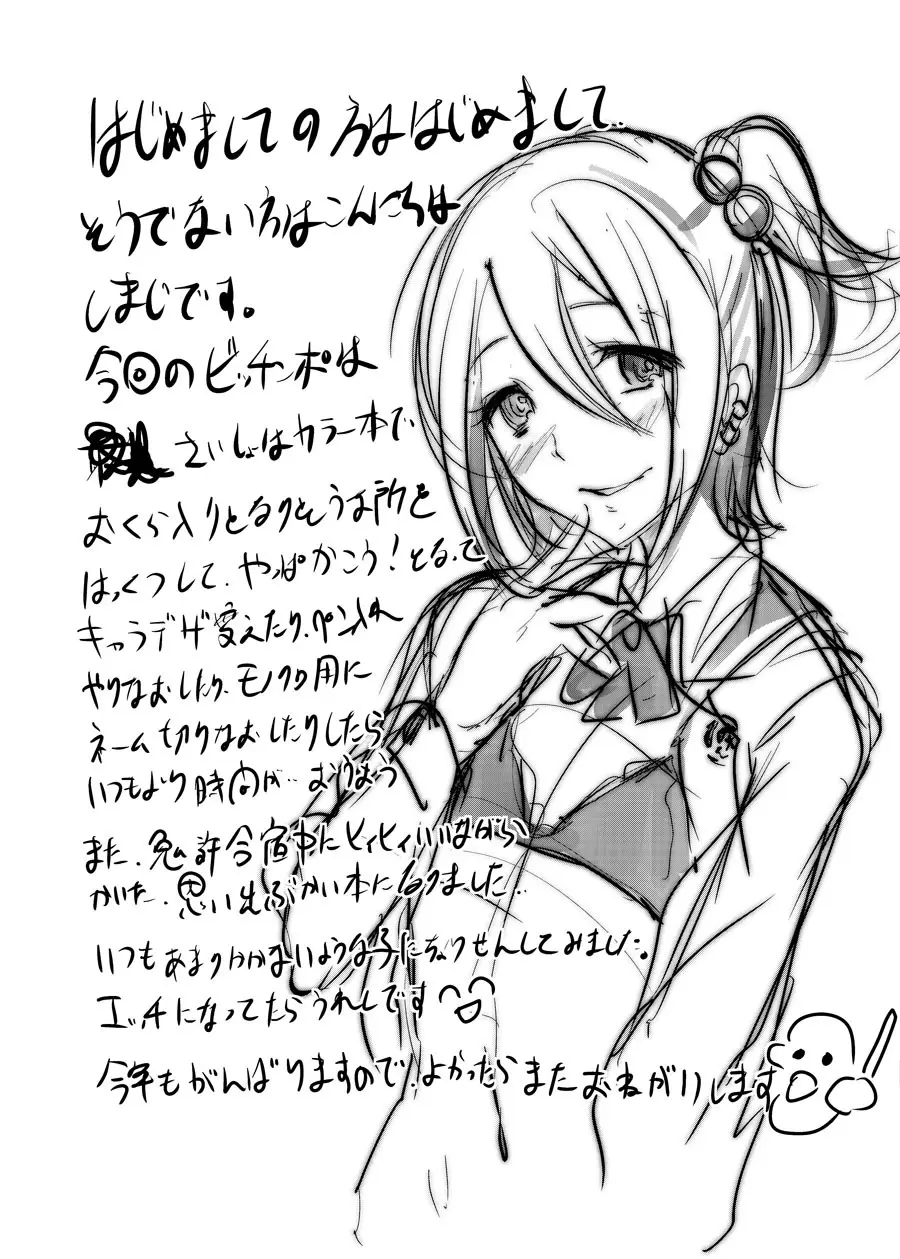 はじめましての方ははじめまして
そうでない方はこんにちは
しまじです。
今回のビッチンポは
さいしょはカラー本で
おくら入りとなりそうな所を
はっくつして、やっぱかこう!となって
キャラデザ変えたり、ペン入れ
やりなおしたり、モノクロ用に
ネーム切りなおしたりしたら
いつもより時間が‥おりもう
また、免許合宿中にヒィヒィいいながら
かいた、思い出ぶかい本になりました‥
いつもあまりかかないような子にちょうせんしてみました。
エッチになってたらうれしいです
今年もがんばりますので、よかったらまたおねがいします